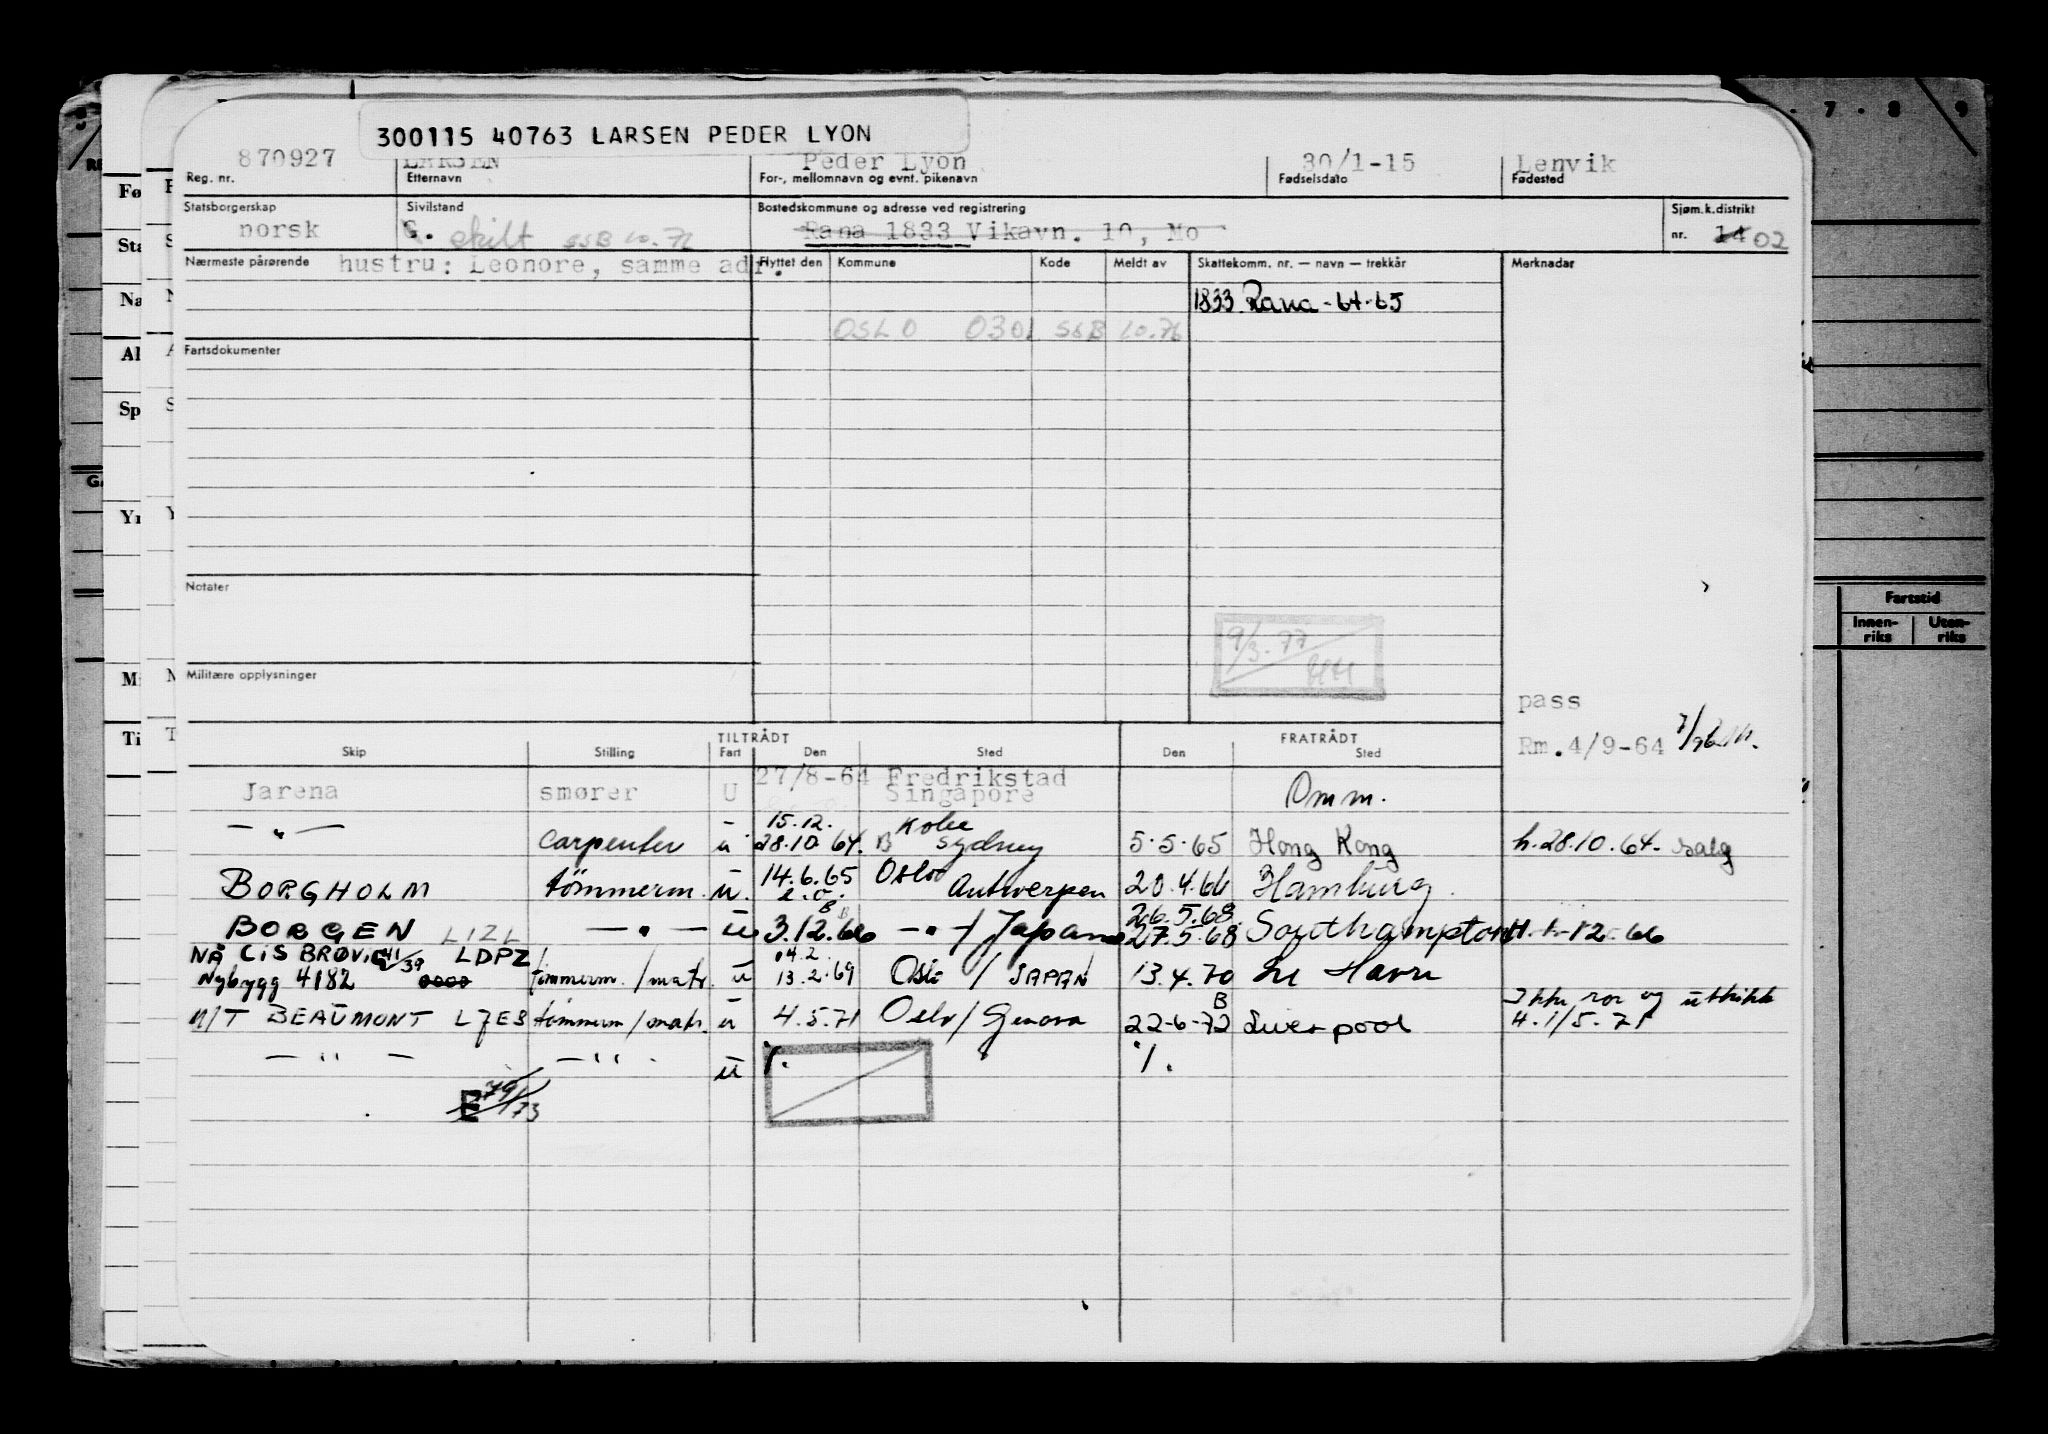 300115 40763 LARSEN PEDER LYON
870927 LARSEN Peder Lyon 30/1-15 Lenvik
Reg. nr. Etternavn For-, mellomnavn og evnt. pikenavn Fødselsdato Fødested
Statsborgerskap Sivilstand Bostedskommune og adresse ved registrering Sjøm.k.distrikt
norsk G. skilt SSB 10.76 Rana 1833 Vikavn. 10, Mo nr. 14 02
Nærmeste pårørende hustru: Leonore, samme adr. Flyttet den Kommune Kode Meldt av Skattekomm. nr. — navn — trekkår Merknader
1833 Rana - 64-65
OSLO 0301 SSB 10.76
Fartsdokumenter
Notater
9/3.77
HH
Militære opplysninger
pass
Rm. 4/9-64
TILTRÅDT FRATRÅDT
Skip Stilling Fart Den Sted Den Sted
27/8-64 Fredrikstad
Jarena smører U Singapore Omm.
15.12. Kobe
— " — carpenter u 28.10.64. B Sydney 5.5.65 Hong Kong h.28.10.64. salg
BORGHOLM tømmerm. u. 14.6.65 Oslo Antwerpen 20.4.66 Hamburg.
26.5.68
BORGEN LIZL — " — u 3.12.66 — " — / Japan 27.5.68 Southampton H. 1-12.66
NÅ CIS BRØVIG 41/39 LDPZ 14.2.
Nybygg 4182 tømmerm. / matr. u 13.2.69 Oslo / JAPAN 13.4.70 Le Havre
Ikke ror og utkikk
M/T BEAUMONT LJES tømmerm / matr. u 4.5.71 Oslo / Genova 22-6-72 B Liverpool H. 1/5.71
— " — — " — u 1. 1.
E 79/73
Fartstid
Innen-riks Uten-riks